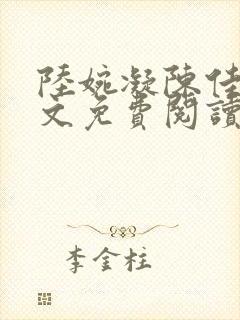 陸婉凝陳佳
文免費閱讀
李金柱